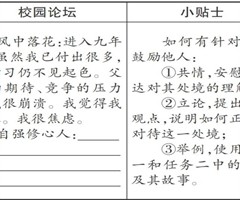 校园论坛
风中落花：进入九年
虽然我已付出很多，
习仍不见起色。父
期待、竞争的压力
很崩溃。我觉得我
。我很焦虑。
自强修心人：
小贴士
如何有针对
鼓励他人：
①共情，安慰
达对其处境的理解
②立论，提出
观点，说明如何正
对待这一处境；
③举例，使用
一和任务二中的
及其故事。